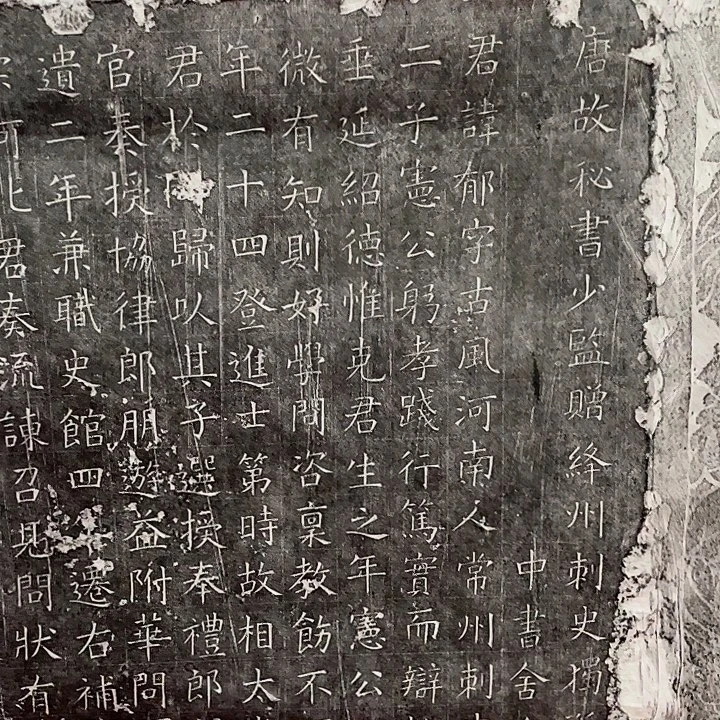 唐故秘書少監贈絳州刺史獨
中書舍
君諱郁字古風河南人常州刺
二子憲公躬孝踐行篤實而辯
垂延紹德惟克君生之年憲公
微有知則好學問咨稟教飭不
年二十四登進士第時故相太
君於歸以其子選授奉禮郎
官奏授協律郎朋遊益附華問
遺二年兼職史館四年遷右補
河北君奏流諫召見問狀有